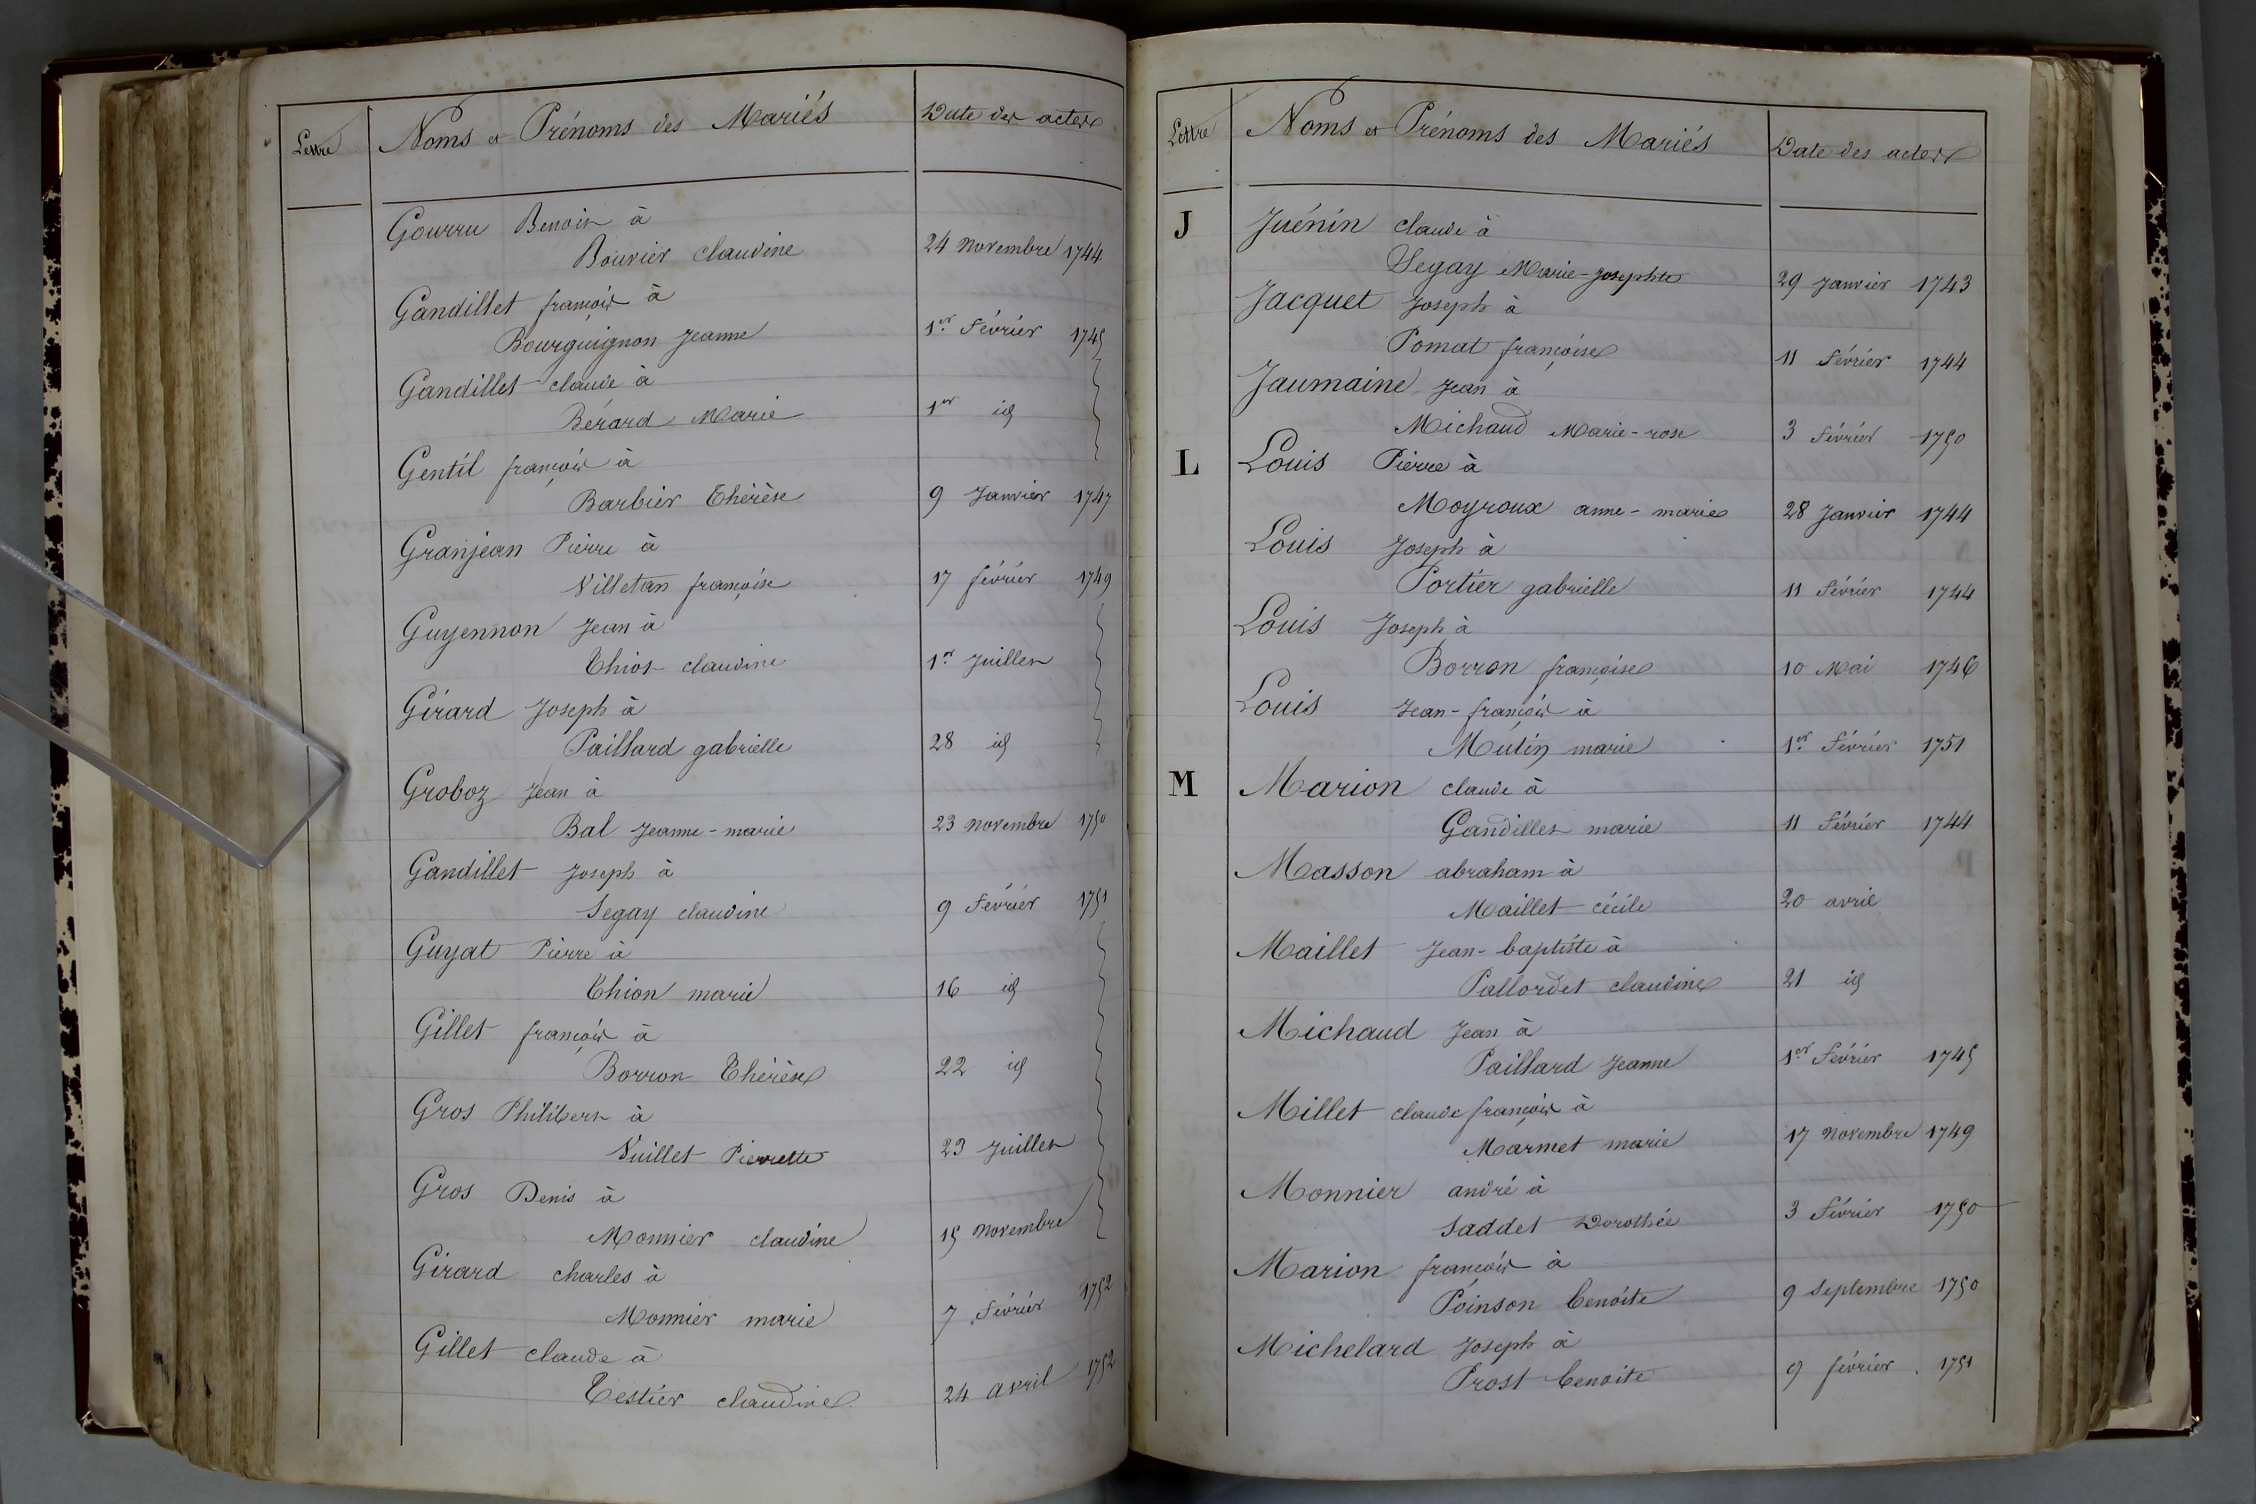 Lettre Noms et Prénoms des Mariés Date des actes
Gourru Benoit à
Bouvier claudine 24 novembre 1744
Gandillet françois à
Bourguignon Jeanne 1er Février 1745
Gandillet claude à
Bérard Marie 1er id
Gentil françois à
Barbier Thérèse 9 Janvier 1747
Granjean Pierre à
Villetan françoise 17 février 1749
Guyennon Jean à
Thiot claudine 1er Juillet
Girard Joseph à
Paillard gabrielle 28 id
Groboz Jean à
Bal Jeanne-marie 23 novembre 1750
Gandillet Joseph à
Segay claudine 9 Février 1751
Guyat Pierre à
Thion marie 16 id
Gillet françois à
Borron Thérèse 22 id
Gros Philibert à
Vuillet Pierrette 23 Juillet
Gros Denis à
Monnier claudine 15 novembre
Girard charles à
Monnier marie 7 Février 1752
Gillet claude à
Testier claudine 24 avril 1752
Lettre Noms et Prénoms des Mariés Date des actes
J Juénin claude à
Segay Marie-Josephte 29 Janvier 1743
Jacquet Joseph à
Pomat françoise 11 Février 1744
Jaumaine Jean à
Michaud Marie-rose 3 Février 1750
L Louis Pierre à
Moyroux anne-marie 28 Janvier 1744
Louis Joseph à
Portier gabrielle 11 Février 1744
Louis Joseph à
Borron françoise 10 Mai 1746
Louis Jean-françois à
Mutin marie 1er Février 1751
M Marion claude à
Gandillet marie 11 Février 1744
Masson abraham à
Maillet cécile 20 avril
Maillet Jean-baptiste à
Pallordet claudine 21 id
Michaud Jean à
Paillard Jeanne 1er Février 1745
Millet claude françois à
Marmet marie 17 novembre 1749
Monnier andré à
Saddet Dorothée 3 Février 1750
Marion françois à
Poinson benoite 9 Septembre 1750
Michelard Joseph à
Prost benoite 9 février 1751